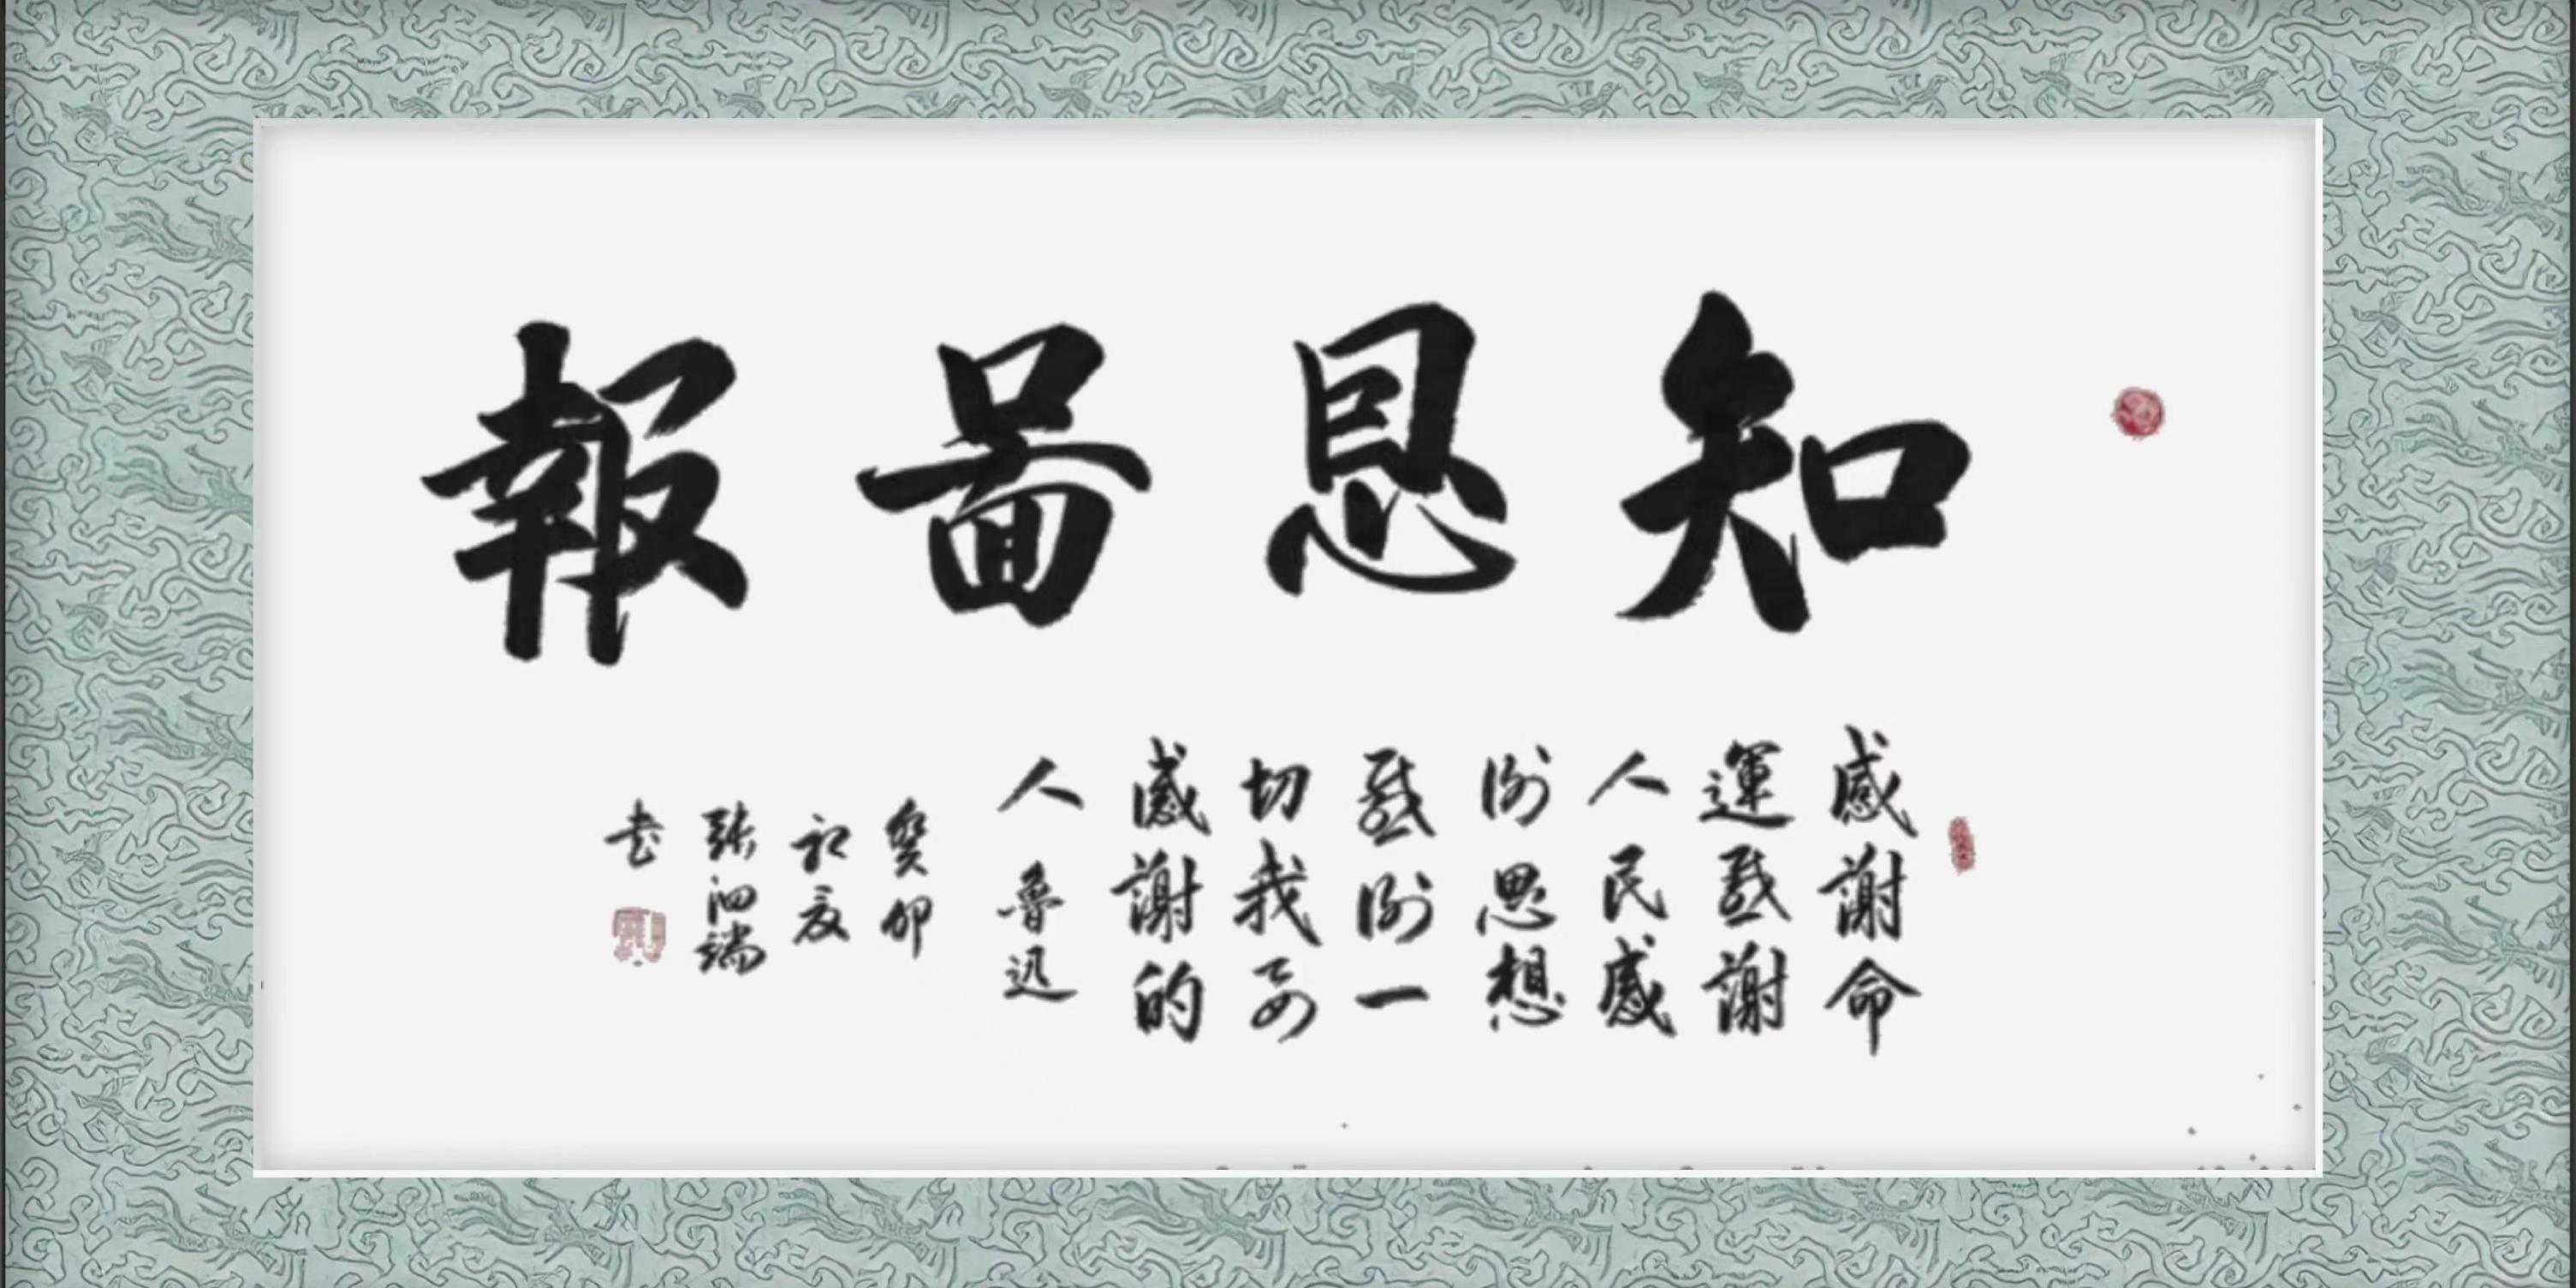 知恩啚報
感謝命
運感謝
人民感
谢思想
感谢一
切我要
感謝的
人魯迅
癸卯
初夏
張泗端
书